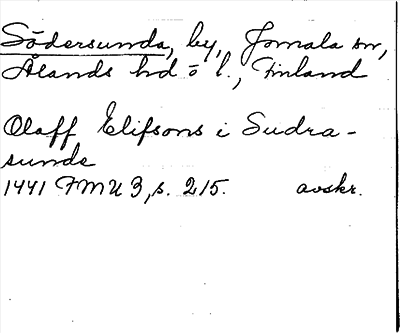 Södersunda, by, Jomala sn,
Ålands hd o l., Finland
Olaff Elifsons i Sudra-
sunde
1441 FMU 3, s. 215. avskr.